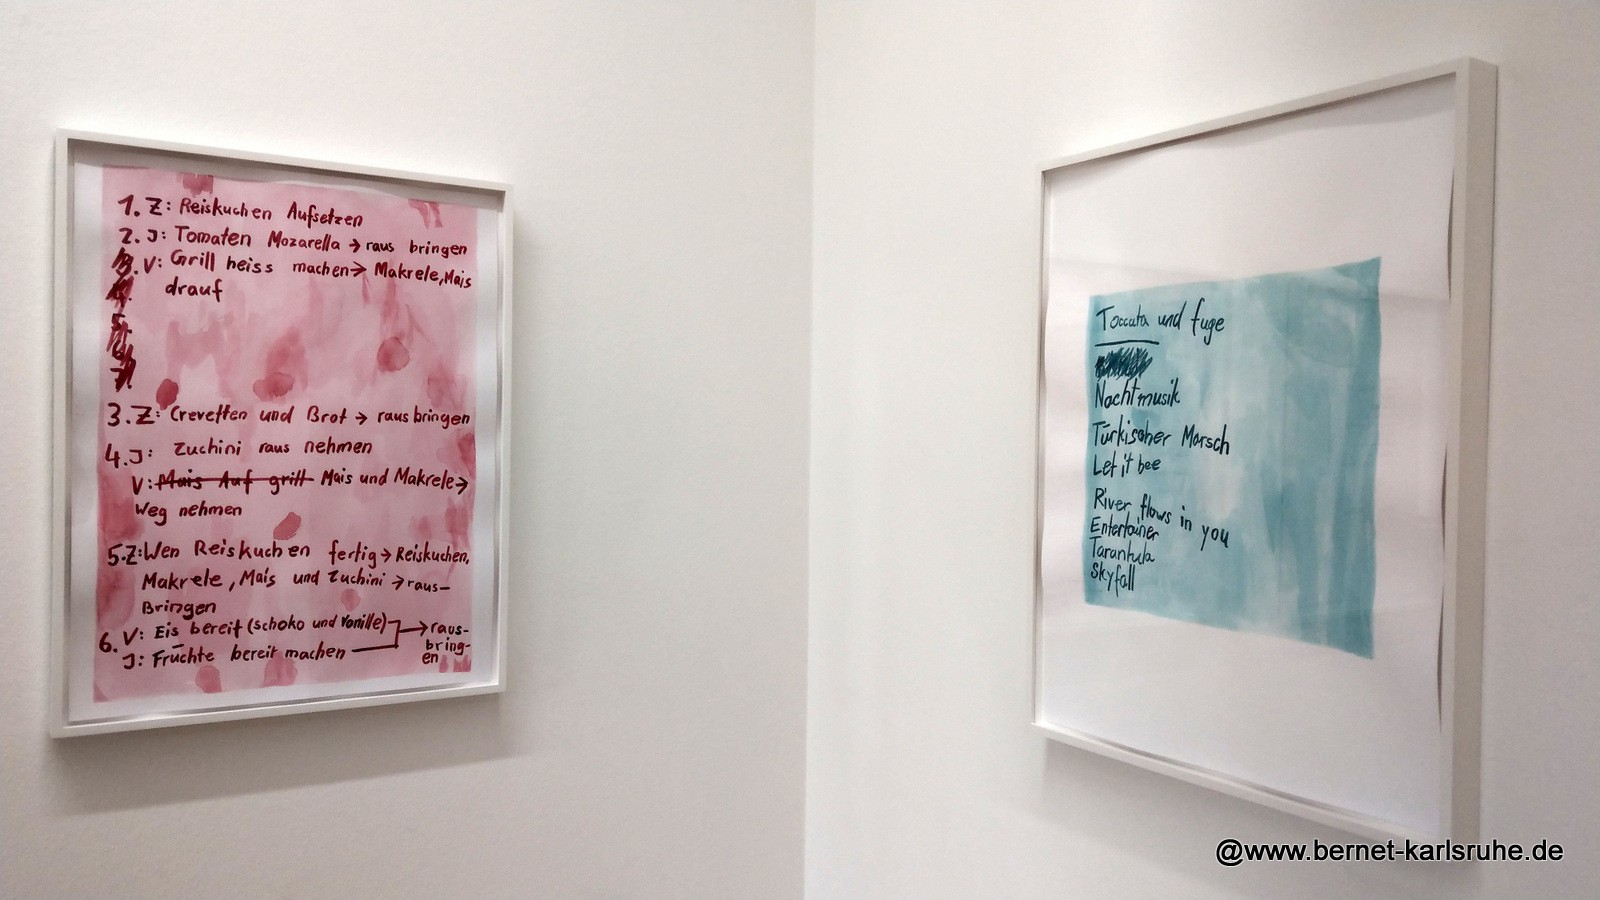 1. Z: Reiskuchen Aufsetzen
2. J: Tomaten Mozarella → raus bringen
3. V: Grill heiss machen → Makrele, Mais
drauf
4.
5.
6.
7.
3. Z: Crevetten und Brot → raus bringen
4. J: Zuchini raus nehmen
V: Mais Auf grill Mais und Makrele →
Weg nehmen
5. Z: Wen Reiskuchen fertig → Reiskuchen,
Makrele, Mais und Zuchini → raus-
Bringen
6. V: Eis bereit (schoko und Vanille) → raus-
bring-
en
J: Früchte bereit machen
Toccata und fuge
Nachtmusik
Türkischer Marsch
Let it bee
River flows in you
Entertainer
Tarantula
Skyfall
@www.bernet-karlsruhe.de